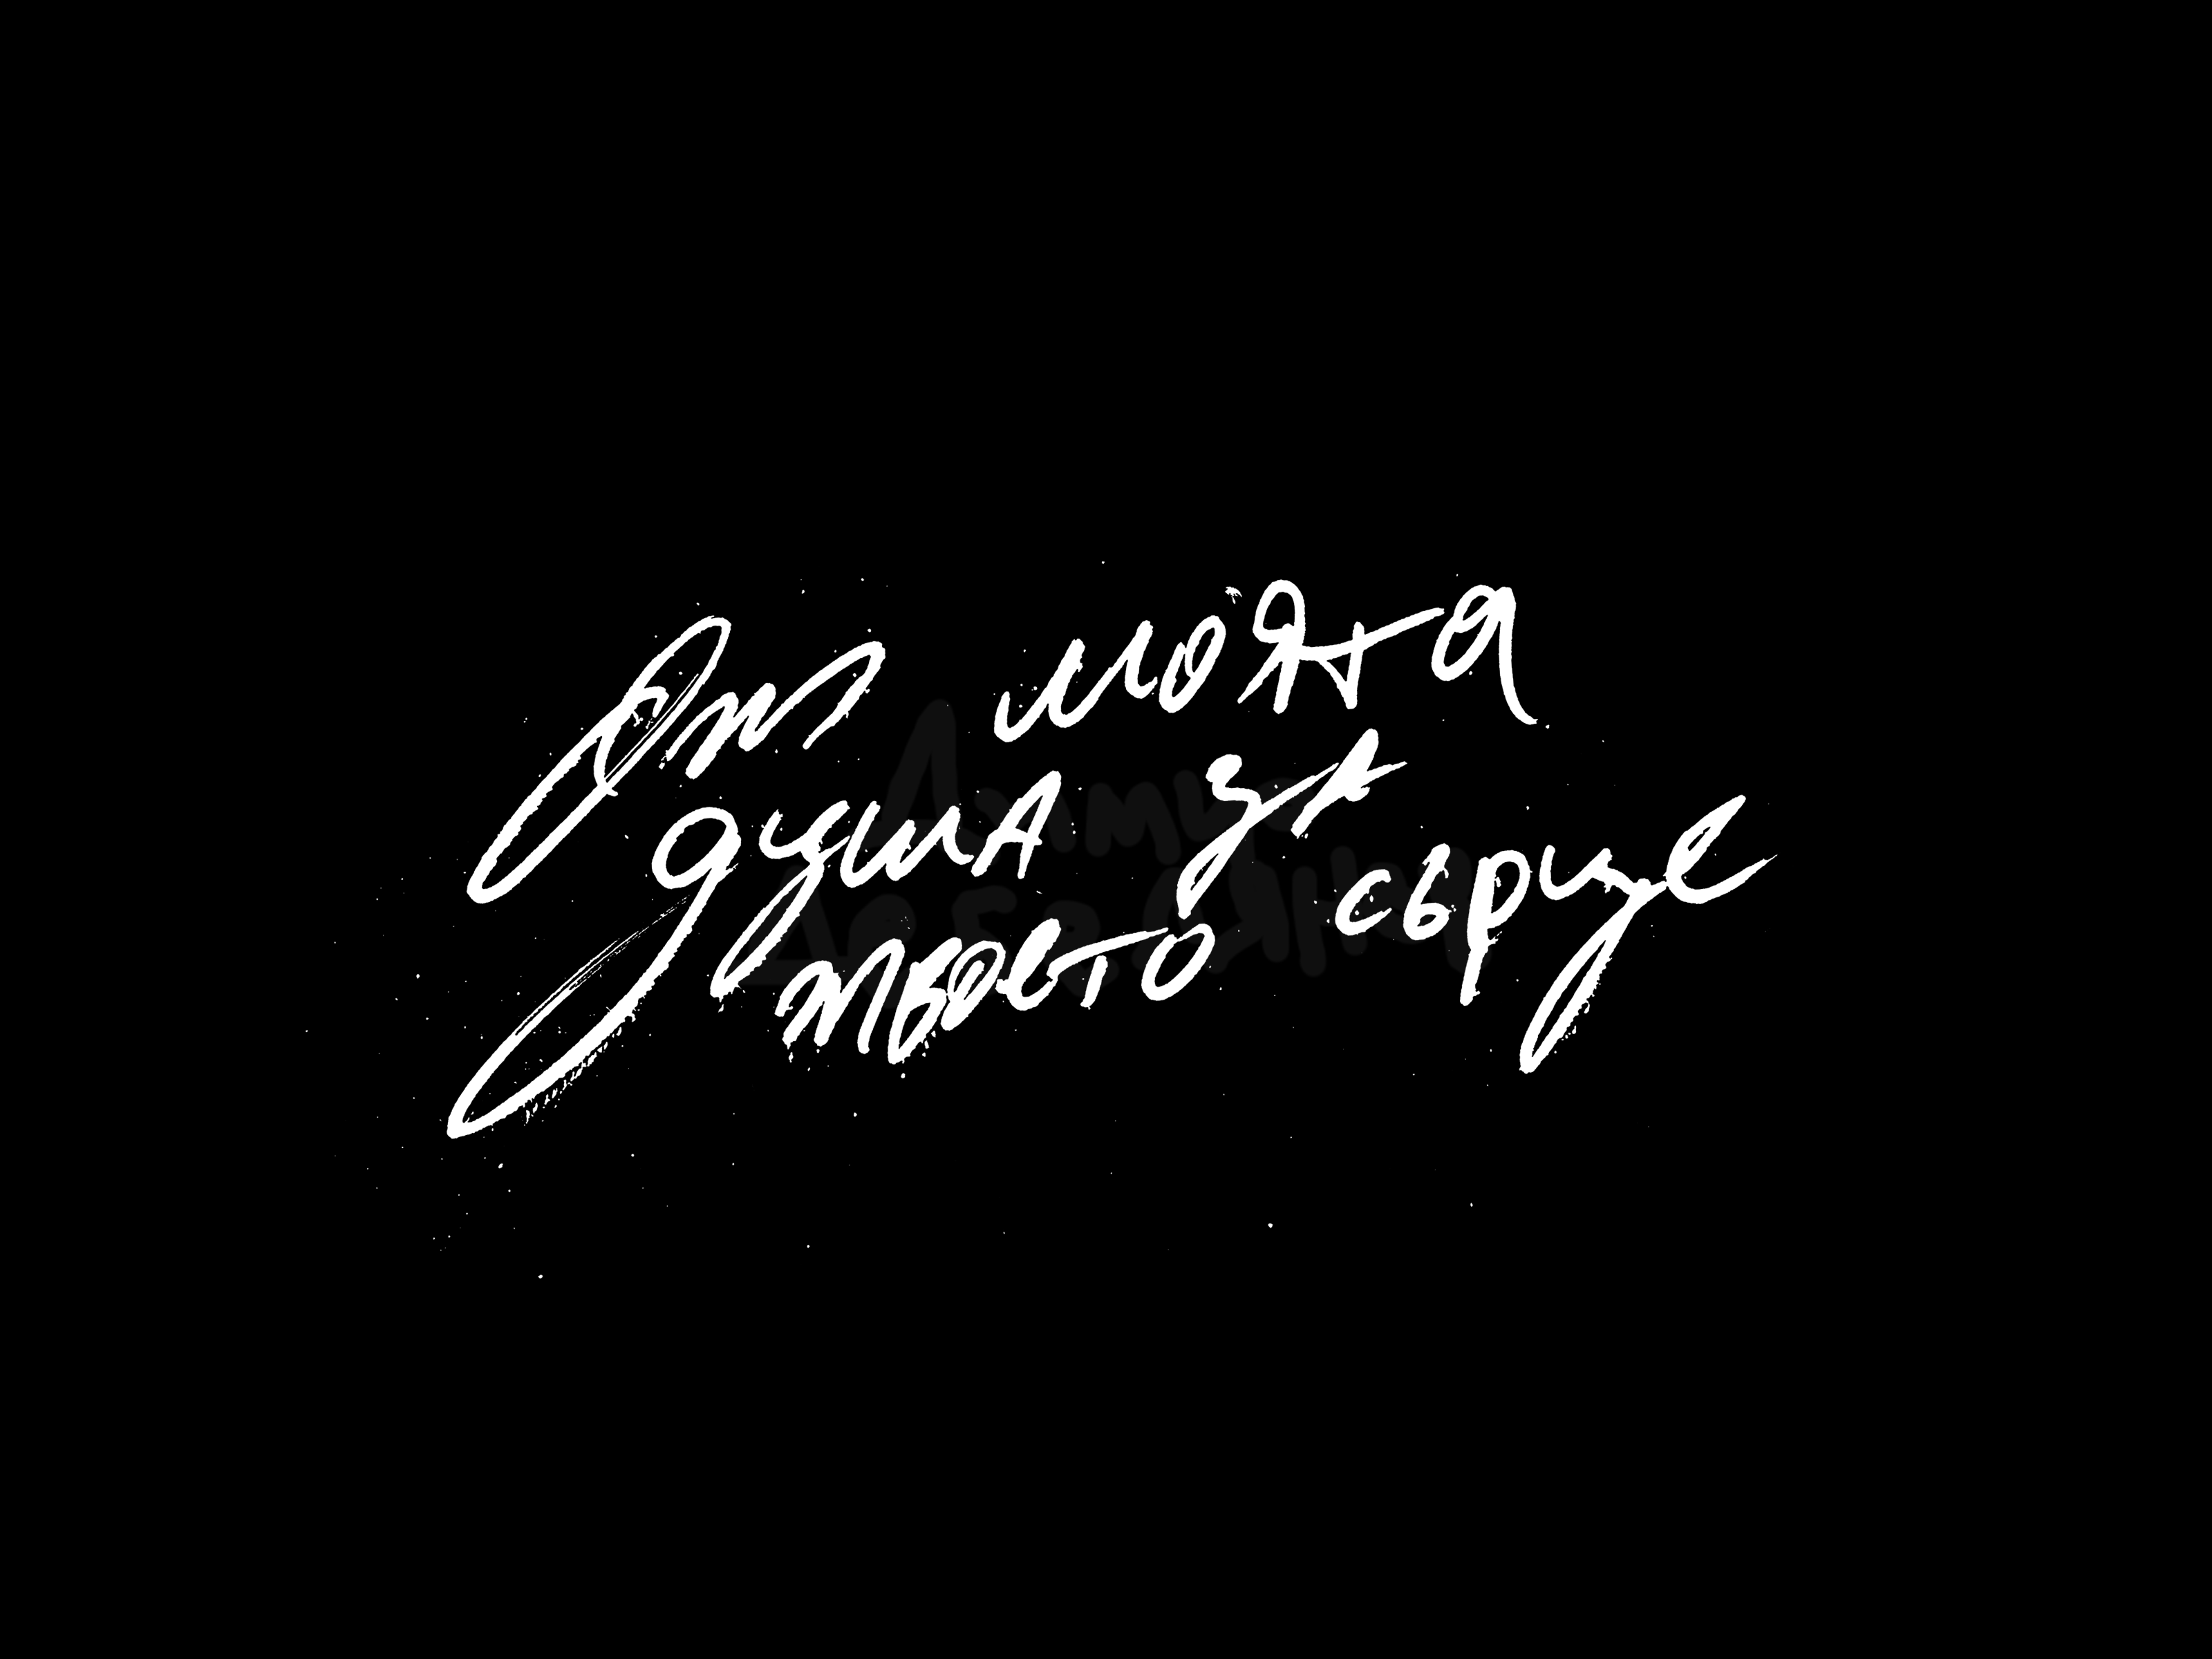 От моята
душа за
твоето сърце